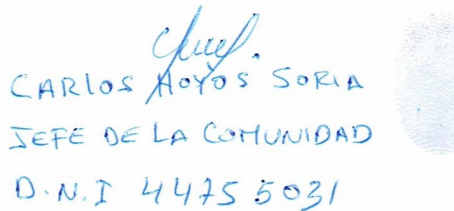 CARLOS HOYOS SORIA
JEFE DE LA COMUNIDAD
D.N.I 44755031